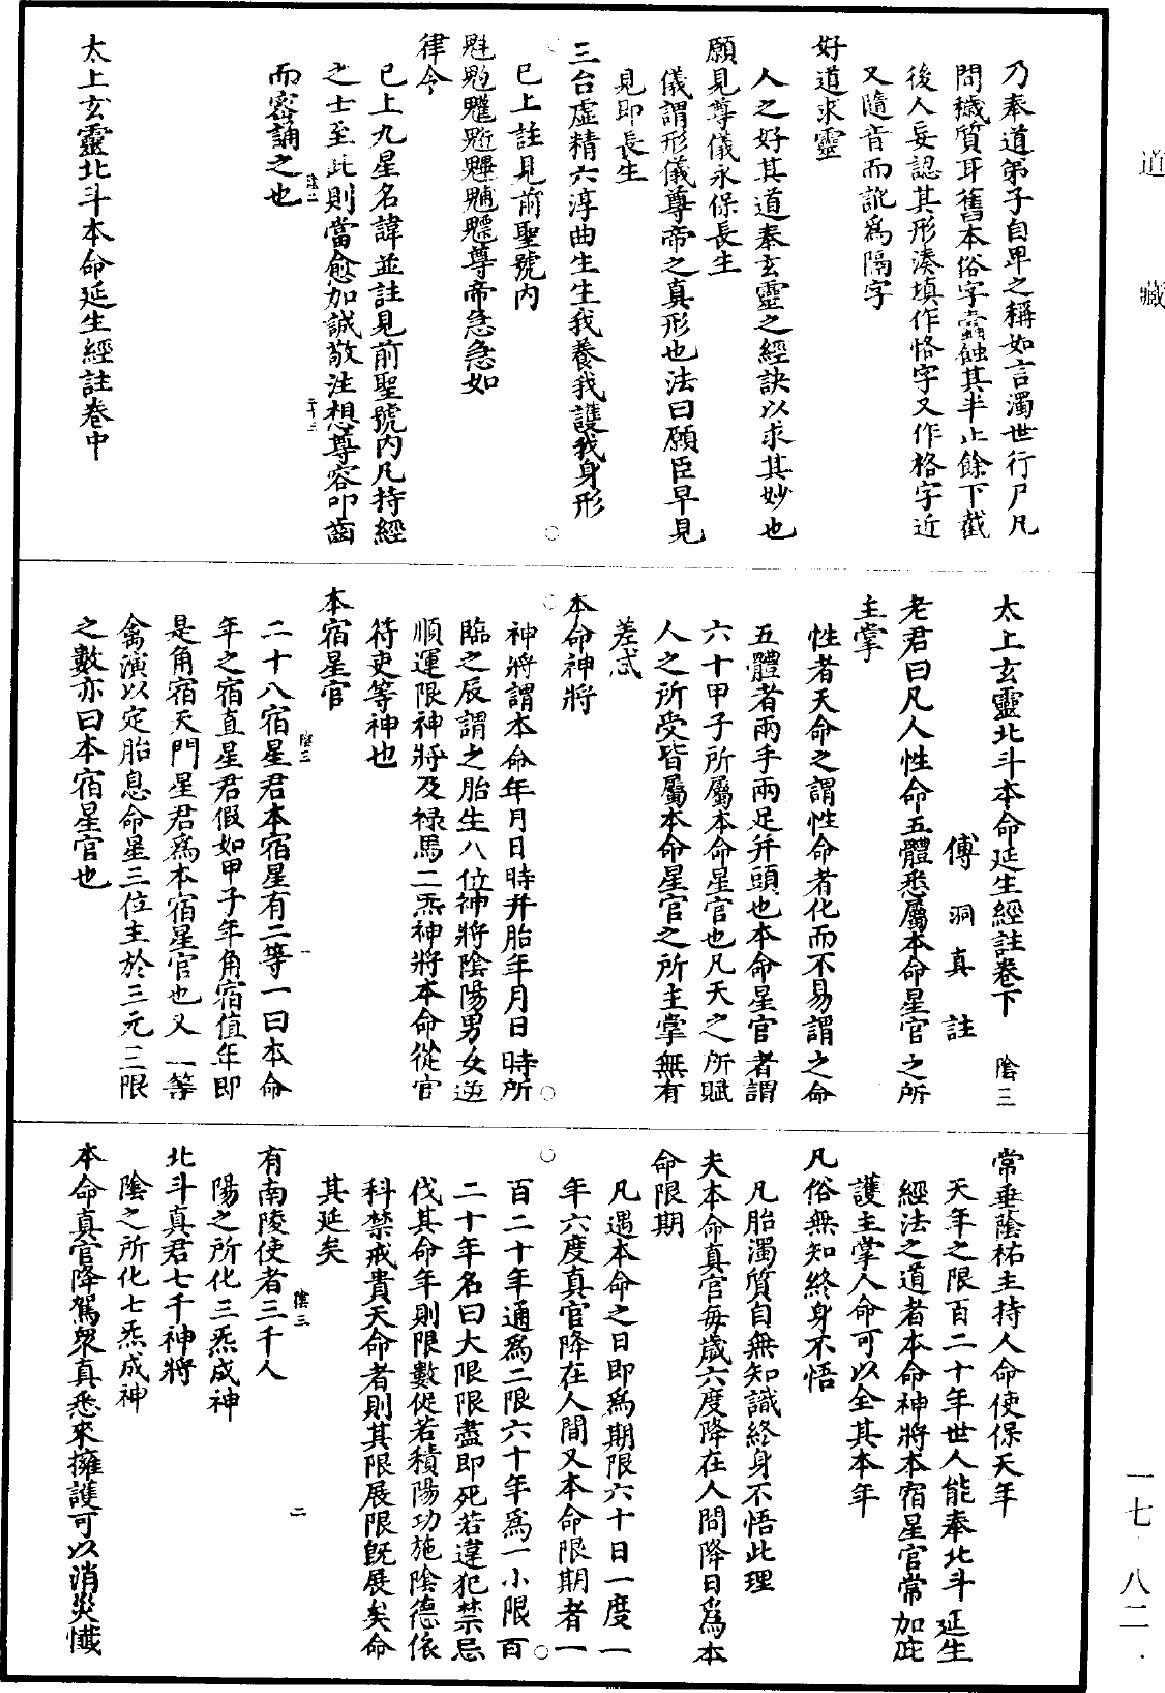 道藏
乃奉道弟子自卑之稱如言濁世行尸凡
間穢質耳舊本俗字蠹蝕其半止餘下截
後人妄認其形湊填作恪字又作格字近
又隨音而訛爲隔字
好道求靈
人之好其道奉玄靈之經訣以求其妙也
願見尊儀永保長生
儀謂形儀尊帝之真形也法曰願臣早見
見即長生
三台虛精六淳曲生生我養我護我身形
已上註見前聖號内
魁𩲃䰢魓䰨魒魒尊帝急急如
律令
已上九星名諱並註見前聖號内凡持經
之士至此則當愈加誠敬注想尊容叩齒
而密誦之也
太上玄靈北斗本命延生經註卷中
太上玄靈北斗本命延生經註卷下 陰三
傅洞真註
老君曰凡人性命五體悉屬本命星官之所
主掌
性者天命之謂性命者化而不易謂之命
五體者兩手兩足并頭也本命星官者謂
六十甲子所屬本命星官也凡天之所賦
人之所受皆屬本命星官之所主掌無有
差忒
本命神將
神將謂本命年月日時并胎年月日時所
臨之辰謂之胎生八位神將陰陽男女逆
順運限神將及祿馬二炁神將本命從官
符吏等神也
本宿星官
二十八宿星君本宿星有二等一曰本命
年之宿直星君假如甲子年角宿值年即
是角宿天門星君爲本宿星官也又一等
禽演以定胎息命星三位主於三元三限
之數亦曰本宿星官也
常垂蔭祐主持人命使保天年
天年之限百二十年世人能奉北斗延生
經法之道者本命神將本宿星官常加庇
護主掌人命可以全其本年
凡俗無知終身不悟
凡胎濁質自無知識終身不悟此理
夫本命真官每歲六度降在人間降日爲本
命限期
凡遇本命之日即爲期限六十日一度一
年六度真官降在人間又本命限期者一
百二十年通爲二限六十年爲一小限百
二十年名曰大限限盡即死若違犯禁忌
伐其命年則限數促若積陽功施陰德依
科禁戒貴天命者則其限展限旣展矣命
其延矣
有南陵使者三千人
陽之所化三炁成神
北斗真君七千神將
陰之所化七炁成神
本命真官降駕衆真悉來擁護可以消災懺
一七·八二